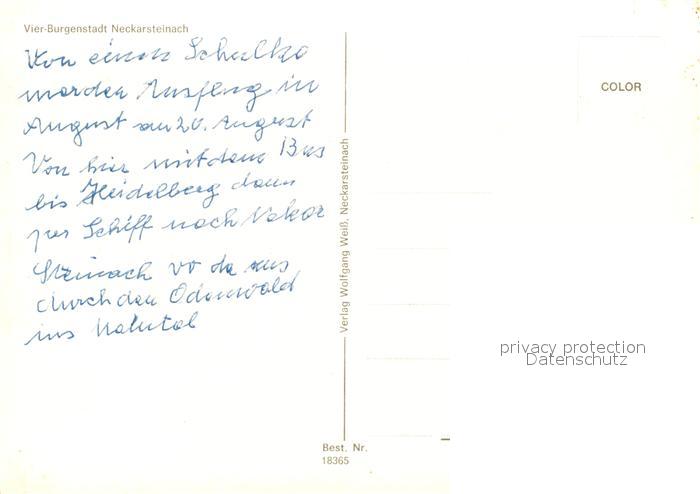 Vier-Burgenstadt Neckarsteinach
Von einem Schulka
meraden Ausflug in
August am 20. August
Von hier mit dem Bus
bis Heidelberg dann
per Schiff nach Nekar
Steinach vo da aus
durch den Odenwald
ins Nahetal
Verlag Wolfgang Weiß, Neckarsteinach
COLOR
privacy protection
Datenschutz
Best. Nr.
18365